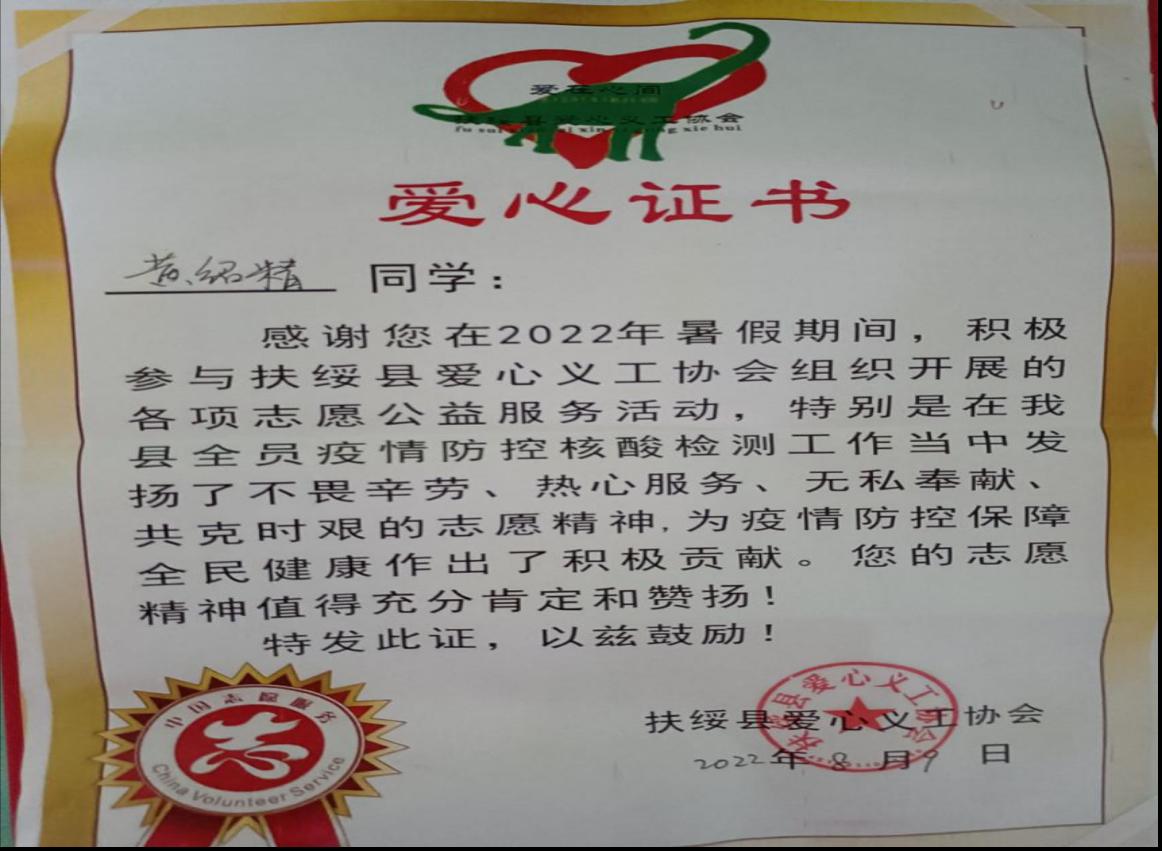 爱在心间
扶绥县爱心义工协会
爱心证书
黄绍精 同学：
感谢您在2022年暑假期间，积极
参与扶绥县爱心义工协会组织开展的
各项志愿公益服务活动，特别是在我
县全员疫情防控核酸检测工作当中发
扬了不畏辛劳、热心服务、无私奉献、
共克时艰的志愿精神,为疫情防控保障
全民健康作出了积极贡献。您的志愿
精神值得充分肯定和赞扬！
特发此证，以兹鼓励！
中国志愿服务
China Volunteer Service
扶绥县爱心义工协会
扶绥县爱心义工协会
2022年8月9日